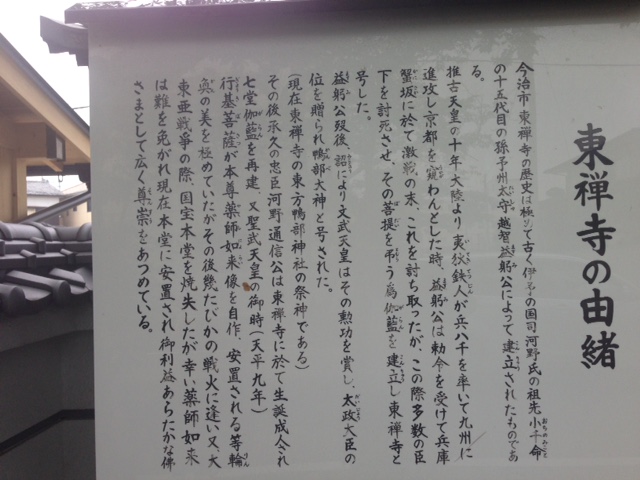 東禅寺の由緒
今治市 東禅寺の歴史は極めて古く伊予の国司河野氏の祖先小千命
の十五代目の孫予州太守越智益躬公によって建立されたものであ
る。
推古天皇の十年大陸より夷狄鉄人が兵八千を率いて九州に
進攻し京都を窺わんとした時、益躬公は勅令を受けて兵庫
蟹坂に於て激戦の末、これを討ち取ったが、この際多数の臣
下を討死させ、その菩提を弔う為伽藍を建立し東禅寺と
号した。
益躬公歿後、詔により文武天皇はその勲功を賞し、太政大臣の
位を贈られ鴨部大神と号された。
(現在東禅寺の東方鴨部神社の祭神である)
その後承久の忠臣河野通信公は東禅寺に於て生誕成人され
七堂伽藍を再建、又聖武天皇の御時(天平九年)
行基菩薩が本尊薬師如来像を自作、安置される等輪
奐の美を極めていたがその後幾たびかの戦火に逢い又、大
東亜戦争の際、国宝本堂を焼失したが幸い薬師如来
は難を免がれ現在本堂に安置され御利益あらたかな佛
さまとして広く尊崇をあつめている。